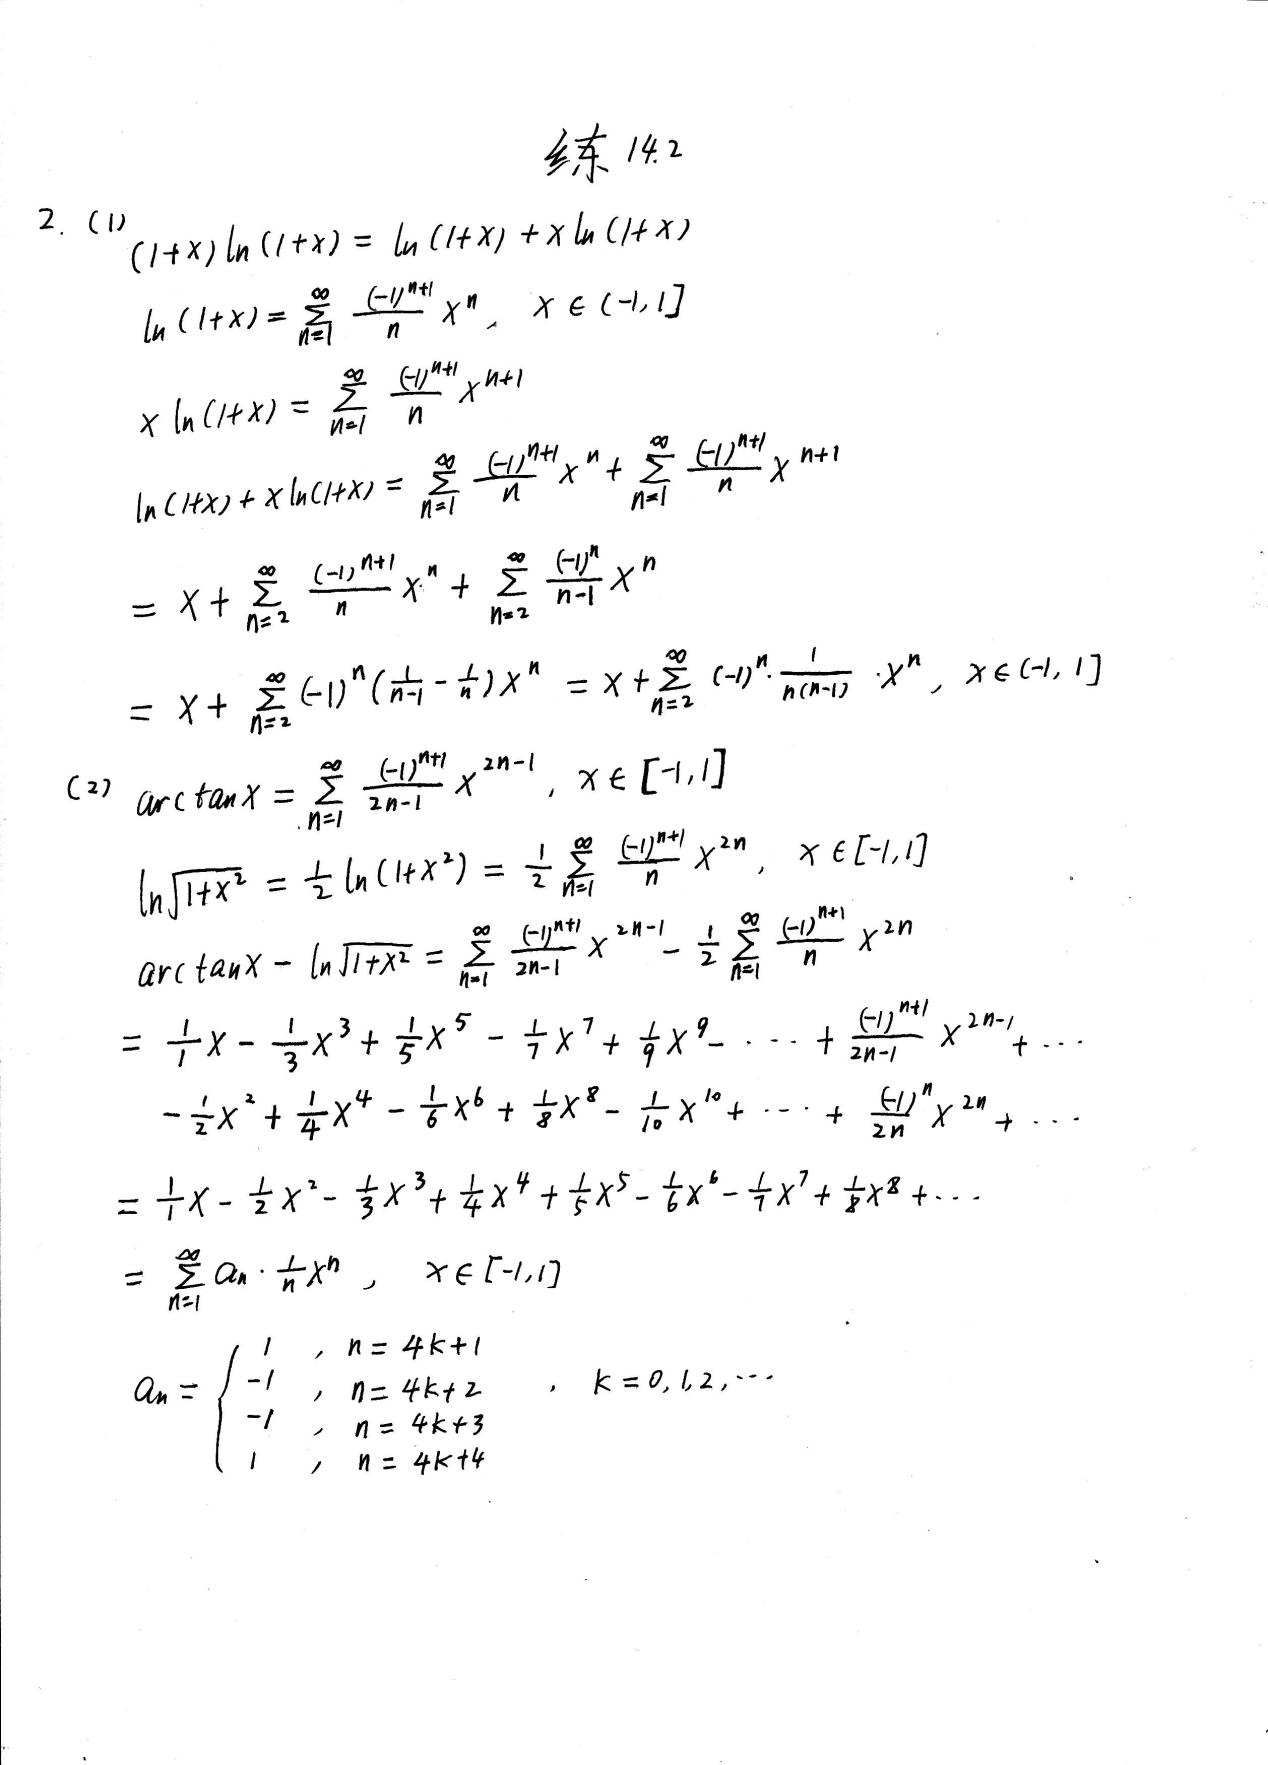 练 14.2
2. (1)
(1+x) ln (1+x) = ln (1+x) + x ln (1+x)
ln (1+x) = \sum_{n=1}^{∞} \frac{(-1)^{n+1}}{n} x^n, x ∈ (-1, 1]
x ln (1+x) = \sum_{n=1}^{∞} \frac{(-1)^{n+1}}{n} x^{n+1}
ln (1+x) + x ln (1+x) = \sum_{n=1}^{∞} \frac{(-1)^{n+1}}{n} x^n + \sum_{n=1}^{∞} \frac{(-1)^{n+1}}{n} x^{n+1}
= x + \sum_{n=2}^{∞} \frac{(-1)^{n+1}}{n} x^n + \sum_{n=2}^{∞} \frac{(-1)^n}{n-1} x^n
= x + \sum_{n=2}^{∞} (-1)^n (\frac{1}{n-1} - \frac{1}{n}) x^n = x + \sum_{n=2}^{∞} (-1)^n · \frac{1}{n(n-1)} · x^n, x ∈ (-1, 1]
(2) arctan x = \sum_{n=1}^{∞} \frac{(-1)^{n+1}}{2n-1} x^{2n-1}, x ∈ [-1, 1]
ln \sqrt{1+x^2} = \frac{1}{2} ln (1+x^2) = \frac{1}{2} \sum_{n=1}^{∞} \frac{(-1)^{n+1}}{n} x^{2n}, x ∈ [-1, 1]
arctan x - ln \sqrt{1+x^2} = \sum_{n=1}^{∞} \frac{(-1)^{n+1}}{2n-1} x^{2n-1} - \frac{1}{2} \sum_{n=1}^{∞} \frac{(-1)^{n+1}}{n} x^{2n}
= \frac{1}{1} x - \frac{1}{3} x^3 + \frac{1}{5} x^5 - \frac{1}{7} x^7 + \frac{1}{9} x^9 - ···· + \frac{(-1)^{n+1}}{2n-1} x^{2n-1} + ···
- \frac{1}{2} x^2 + \frac{1}{4} x^4 - \frac{1}{6} x^6 + \frac{1}{8} x^8 - \frac{1}{10} x^{10} + ···· + \frac{(-1)^n}{2n} x^{2n} + ···
= \frac{1}{1} x - \frac{1}{2} x^2 - \frac{1}{3} x^3 + \frac{1}{4} x^4 + \frac{1}{5} x^5 - \frac{1}{6} x^6 - \frac{1}{7} x^7 + \frac{1}{8} x^8 + ···
= \sum_{n=1}^{∞} a_n · \frac{1}{n} x^n, x ∈ [-1, 1]
1, n = 4k+1
a_n = { -1, n = 4k+2, k = 0, 1, 2, ···
-1, n = 4k+3
1, n = 4k+4